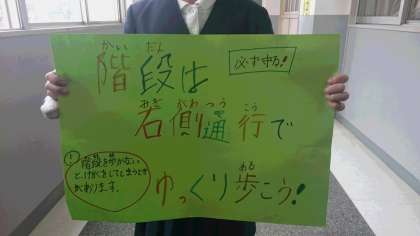 かい だん
階段は
必ず守る!
みぎ がわ つう こう
右側通行で
ある
ゆっくり歩こう!
!
階段を歩かない
と、けがをしてしまうとき
があります。